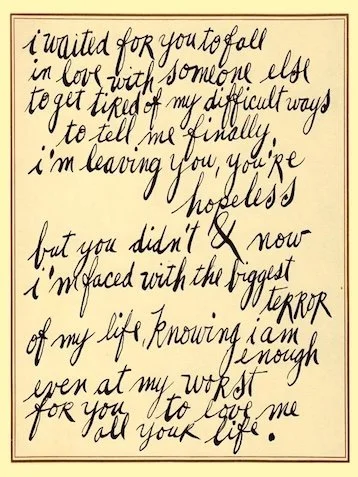 i waited for you to fall
in love with someone else
to get tired of my difficult ways
to tell me finally,
i'm leaving you, you're
hopeless
but you didn't & now
i'm faced with the biggest
terror
of my life, knowing i am
enough
even at my worst
for you to love me
all your life.